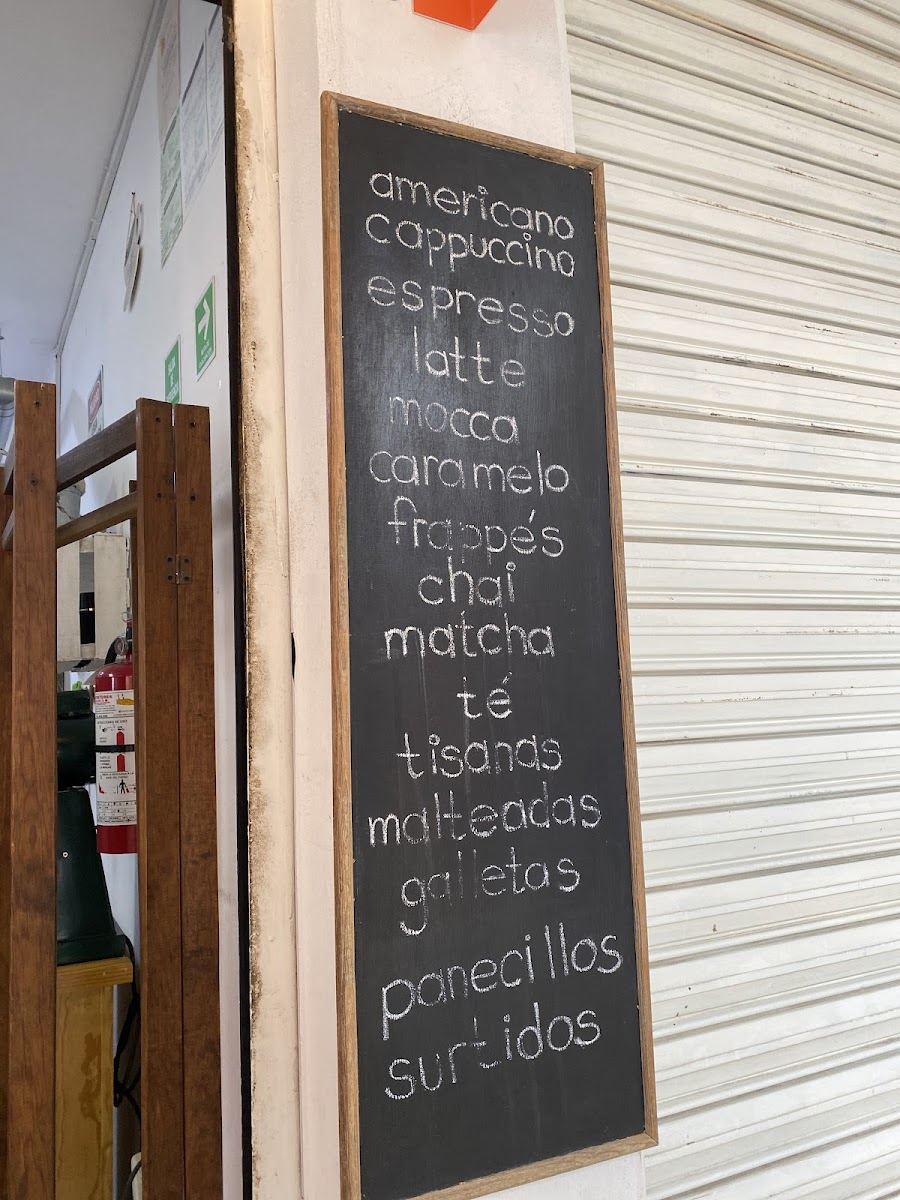 americano
cappuccino
espresso
latte
mocca
caramelo
frappés
chai
matcha
té
tisanas
malteadas
galletas
panecillos
surtidos